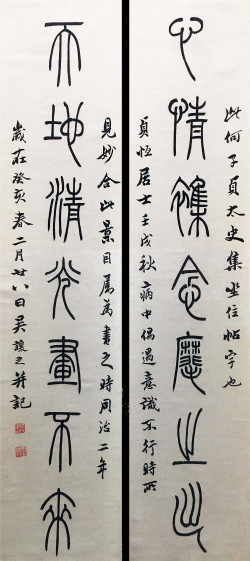 此何子貞太史集坐位帖字也
心情雜念應止此
貞恆居士壬戌秋病中偶遇意識不行時所
見妙合此景因屬為書之時同治二年
天地清光畫不來
歲在癸亥春二月廿八日吳讓之并記